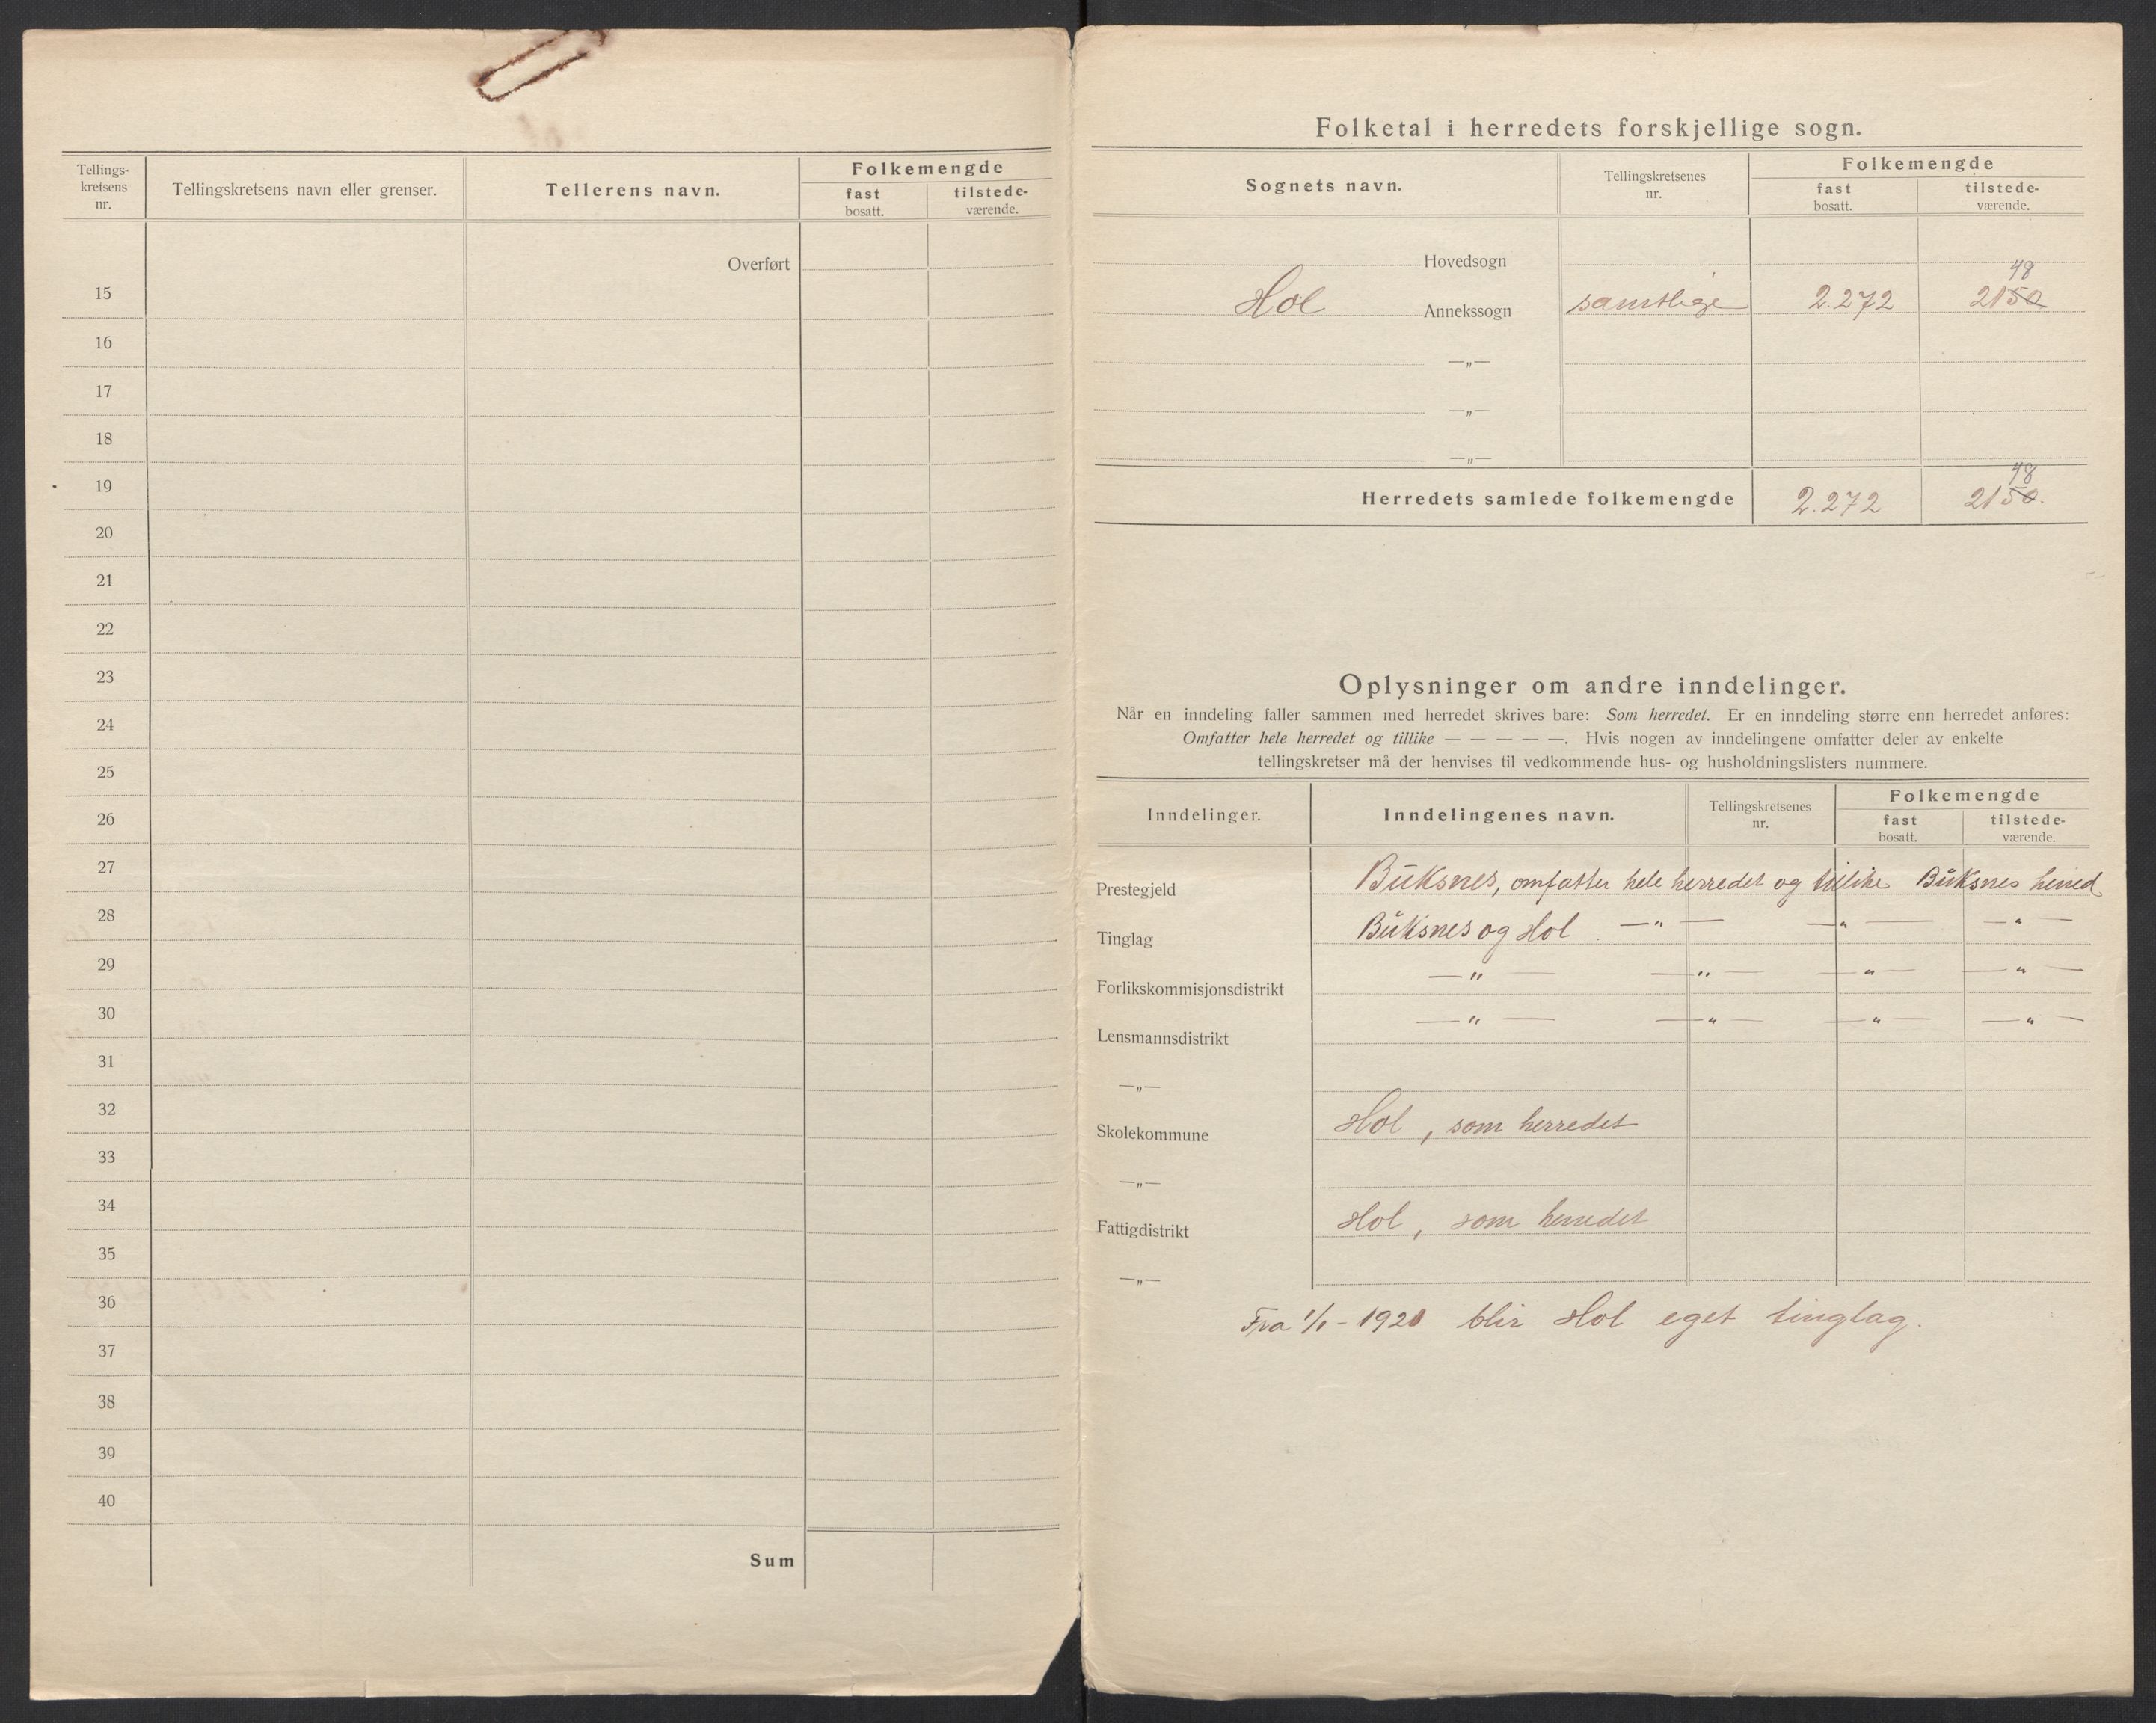 Tellings-
kretsens
nr.
Tellingskretsens navn eller grenser.
Tellerens navn.
Folkemengde
fast
bosatt.
tilstede-
værende.
Overført
15
16
17
18
19
20
21
22
23
24
25
26
27
28
29
30
31
32
33
34
35
36
37
38
39
40
Sum
Folketal i herredets forskjellige sogn.
Sognets navn.
Tellingskretsenes
nr.
Folkemengde
fast
bosatt.
tilstede-
værende.
Hovedsogn
48
Hol Annekssogn samtlige 2.272 2150
—„—
—„—
—„—
48
Herredets samlede folkemengde 2.272 2150.
Oplysninger om andre inndelinger.
Når en inndeling faller sammen med herredet skrives bare: Som herredet. Er en inndeling større enn herredet anføres:
Omfatter hele herredet og tillike — — — — —. Hvis nogen av inndelingene omfatter deler av enkelte
tellingskretser må der henvises til vedkommende hus- og husholdningslisters nummere.
Inndelinger.
Inndelingenes navn.
Tellingskretsenes
nr.
Folkemengde
fast
bosatt.
tilstede-
værende.
Prestegjeld Buksnes, omfatter hele herredet og tillike Buksnes herred
Tinglag Buksnes og Hol —„— —„— —„—
Forlikskommisjonsdistrikt —„— —„— —„— —„—
Lensmannsdistrikt —„— —„— —„— —„—
—„—
Skolekommune Hol, som herredet
—„—
Fattigdistrikt Hol, som herredet
—„—
Fra 1/1 - 1921 blir Hol eget tinglag.